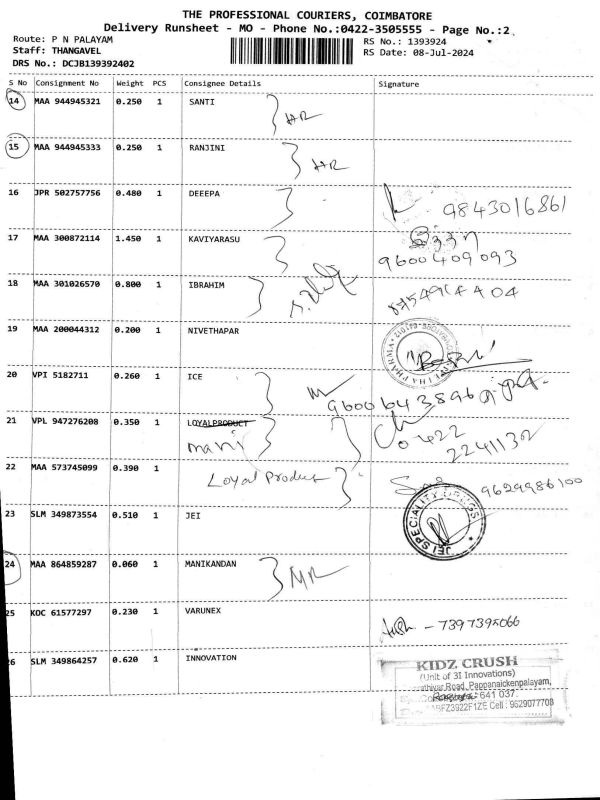 THE PROFESSIONAL COURIERS, COIMBATORE
Delivery Runsheet - MO - Phone No.:0422-3505555 - Page No.:2
Route: P N PALAYAM
RS No.: 1393924
Staff: THANGAVEL
RS Date: 08-Jul-2024
DRS No.: DCJB139392402
S No Consignment No Weight PCS Consignee Details Signature
14 MAA 944945321 0.250 1 SANTI
15 MAA 944945333 0.250 1 RANJINI
16 JPR 502757756 0.480 1 DEEEPA 9843016861
17 MAA 300872114 1.450 1 KAVIYARASU
9600409093
18 MAA 301026570 0.800 1 IBRAHIM
19 MAA 200044312 0.200 1 NIVETHAPAR
20 VPI 5182711 0.260 1 ICE
9600643896
21 VPL 947276208 0.350 1 LOYALPRODUCT
mani 0422
2241132
22 MAA 573745099 0.390 1 Loyal Produc
9629986100
23 SLM 349873554 0.510 1 JEI
JEI SPECIALITY DRUGS
24 MAA 864859287 0.060 1 MANIKANDAN
25 KOC 61577297 0.230 1 VARUNEX
- 7397395066
26 SLM 349864257 0.620 1 INNOVATION
KIDZ CRUSH
(Unit of 3I Innovations)
Road, Pappanaickenpalayam,
641 037.
Cell : 9629077708